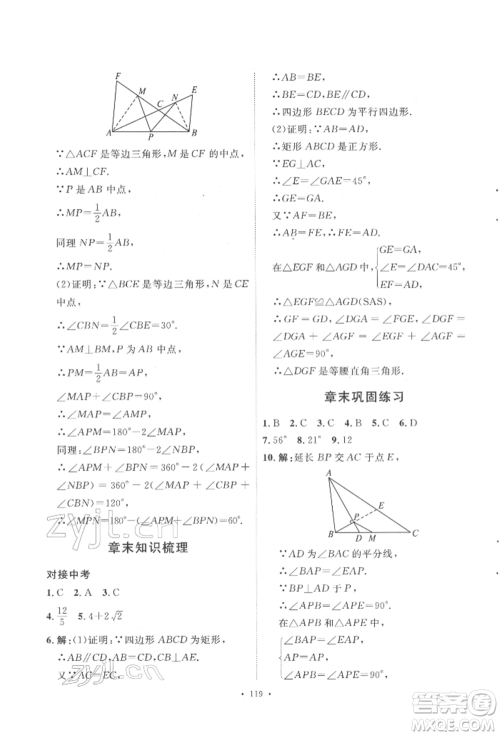 F
M
N
E
C
A
P
B
∵△ACF是等边三角形,M是CF的中点,
∴AM⊥CF.
∵P是AB中点,
∴MP=1/2AB,
同理NP=1/2AB.
∴MP=NP.
(2)证明:∵△BCE是等边三角形,N是CE中点,
∴∠CBN=1/2∠CBE=30°.
∵BP=PN,
∴∠CBN=∠PNB.
∵∠MAP+∠CBP=90°,
∠MAP=∠AMP,
∴∠APM=180°-2∠MAP.
同理:∠BPN=180°-2∠PBN.
∴∠APM+∠BPN=360°-2(∠MAP+∠PBN)=360°-2(90°+30°)=120°.
∴∠MPN=180°-(∠APM+∠BPN)=60°.
章末知识梳理
对接中考
1.C 2.A 3.C
4.12/5 5.4+2√2
6.解:(1)证明:∵四边形ABCD为矩形,
∴AB∥CD,AB=CD.
∵AC∥BE,
∴四边形ABEC为平行四边形.
∴AB=BE,
∴BE=CD,
∵BE∥CD,
∴四边形BECD为平行四边形.
(2)证明:∵AB=AD,
∴矩形ABCD是正方形.
∵EG⊥AC,
∴∠E=∠GAE=45°.
∴GE=GA.
又∵AF=BE,
∴AB=FE,
∴FE=AD.
在△EGF和△AGD中,
GE=GA,
∠E=∠DAC=45°,
EF=AD,
∴△EGF≌△AGD(SAS),
∴GF=GD,∠DGA=∠EGF,
∴∠DGF=∠DGA+∠AGF=∠EGF+∠AGF=∠AGE=90°,
∴△DGF是等腰直角三角形.
章末巩固练习
1.B 2.C 3.A 4.C 5.C 6.D
7.56° 8.21° 9.12
10.解:延长BP交AC于点E,
A
E
P
B
D M
C
∵AD为∠BAC的平分线,
∴∠BAP=∠EAP.
∵BP⊥AD,
∴∠APB=∠APE=90°.
在△APB和△APE中
∠BAP=∠EAP,
AP=AP,
∠APB=∠APE=90°,
· 119 ·
zyjl.cn
答案圈